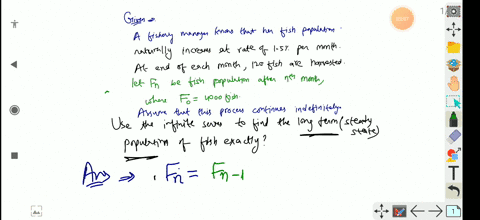 Given ⇒
A fishery manager knows that her fish population
naturally increses at rate of 1.5% per month.
At end of each month, 120 fish are harvested.
let Fn be fish population after nth month,
where F0 = 4000 fish.
Assume that this process continues indefinitely.
Use the infinite series to find the long term (steady state)
population of fish exactly?
Ans ⇒ Fn = Fn-1